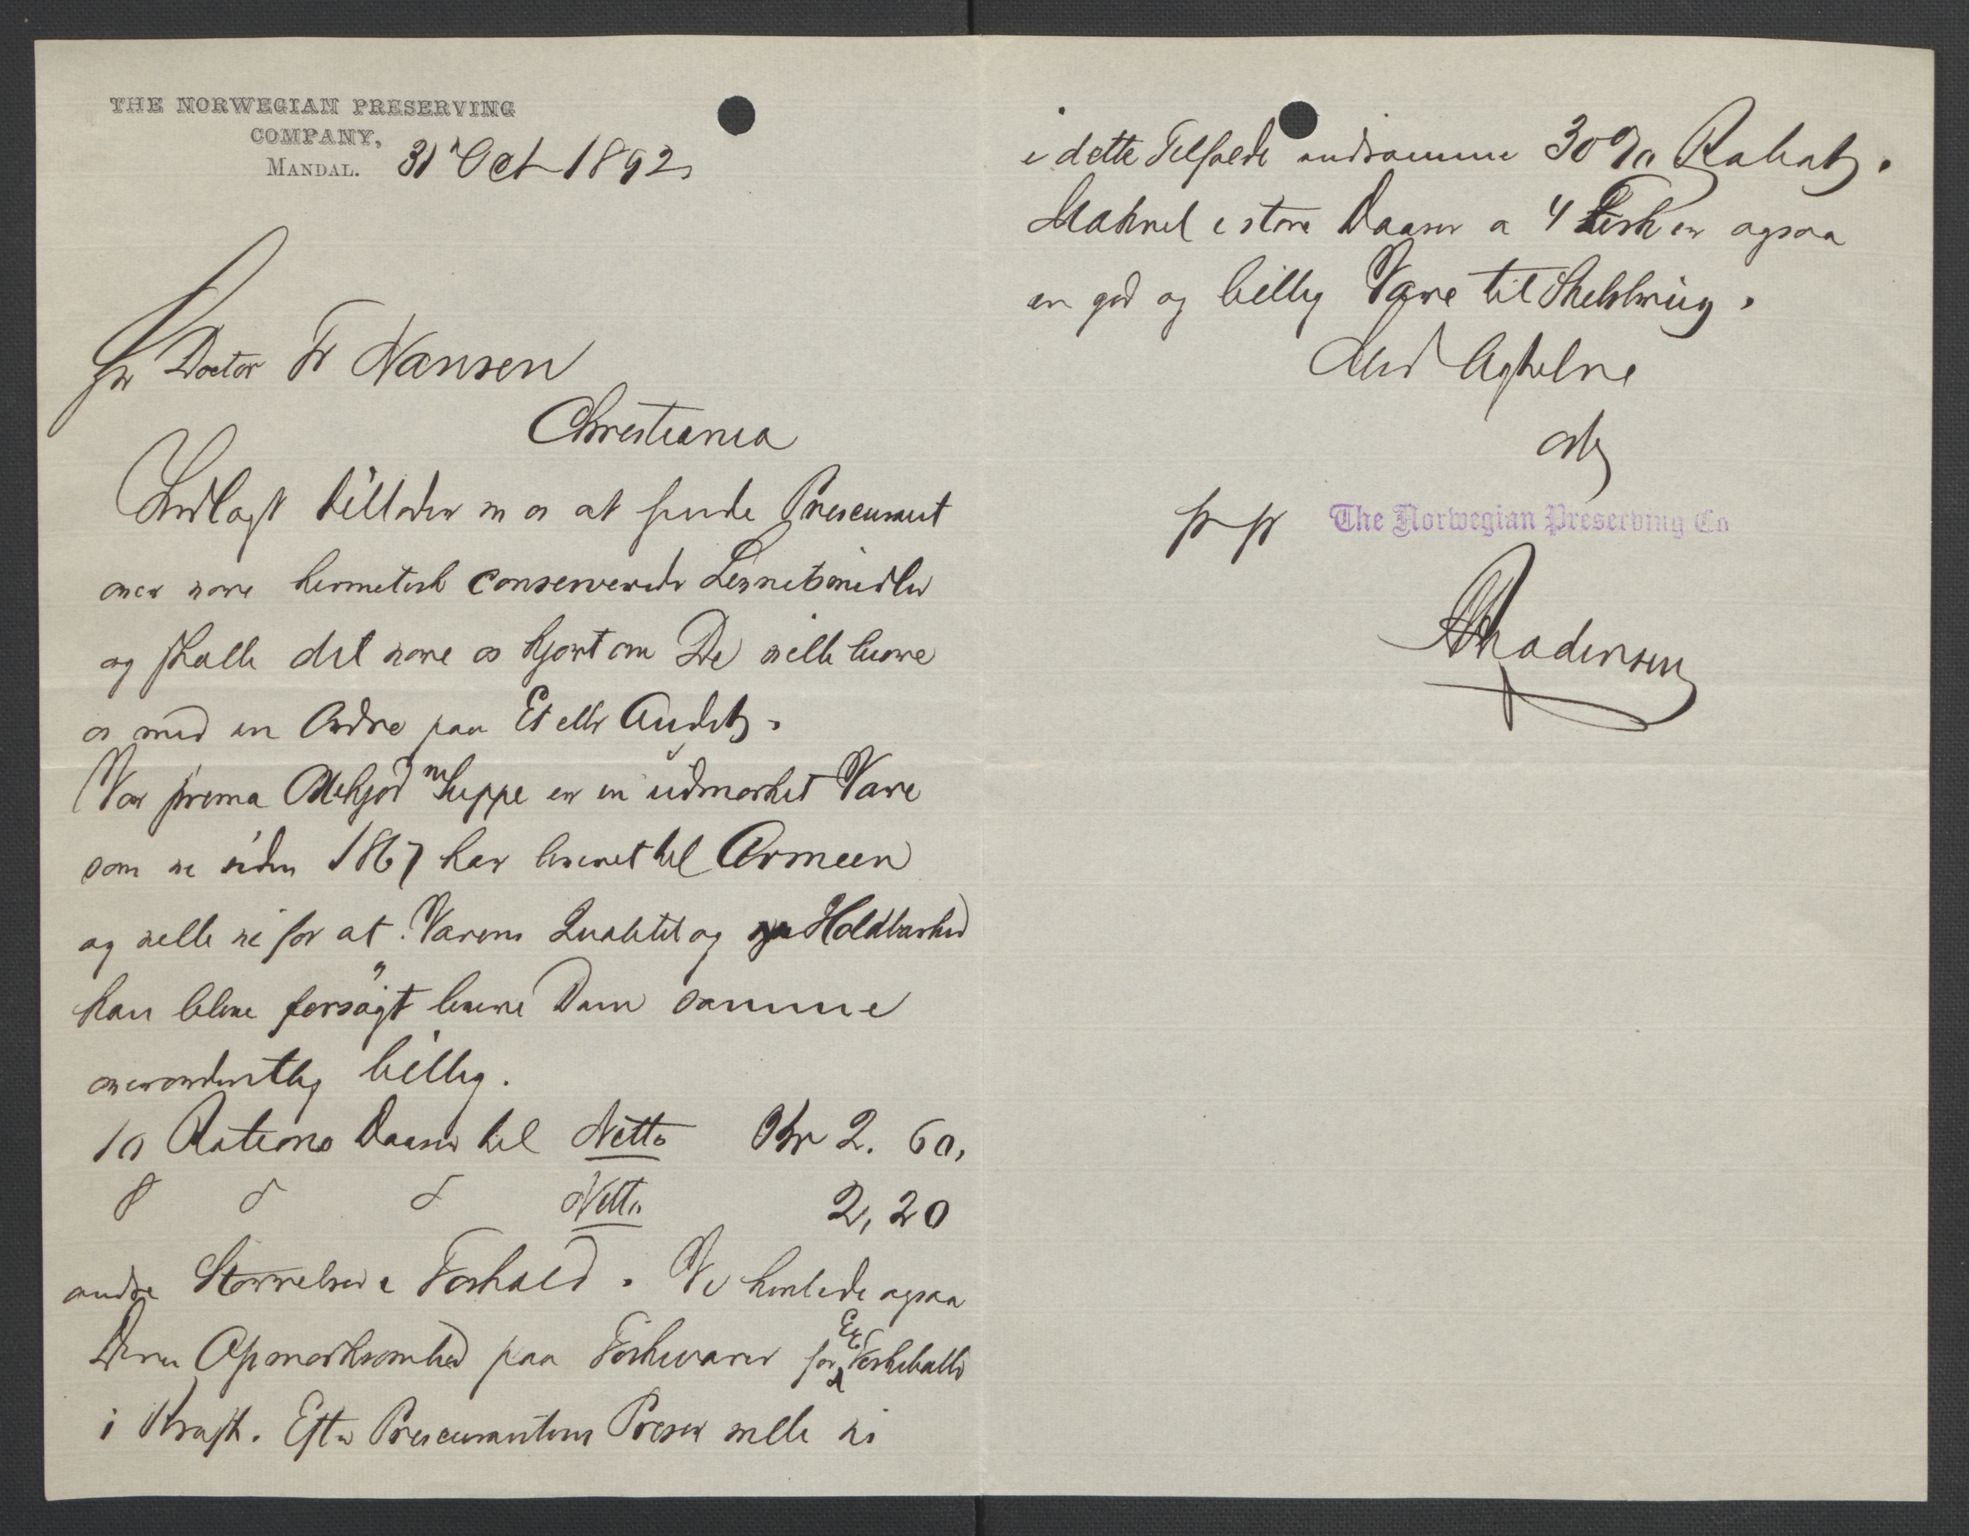 THE NORWEGIAN PRESERVING
COMPANY,
MANDAL. 31 Oct 1892
Hr Doctor Fr Nansen
Christiania
Indlagt tillader vi os at sende Priscurant
over vore hermetisk conserverede Levnetsmidler
og skulle det være os kjært om De vilde beære
os med en Ordre paa Et eller Andet.
Vor prima Oxekjød m Suppe er en udmærket Vare
som vi siden 1867 har leveret til Armeen
og ville vi for at Varens Qualitet og Holdbarhed
kan blive forsøgt levere Dem samme
overordentlig billig.
10 Rations Daaser til Netto Kr 2.60,
8 d d Netto 2,20
andre Størrelser i Forhold. Vi henlede ogsaa
Deres Opmærksomhed paa Fiskevarer for Ex Fiskeboller
i Kraft. Efter Priscurantens Priser ville vi
i dette Tilfælde indrømme 30% Rabat.
Makrel i store Daaser a 4 Fisk er ogsaa
en god og billig Vare til Skibsbrug.
Med Agtelse
pr pr The Norwegian Preserving Co